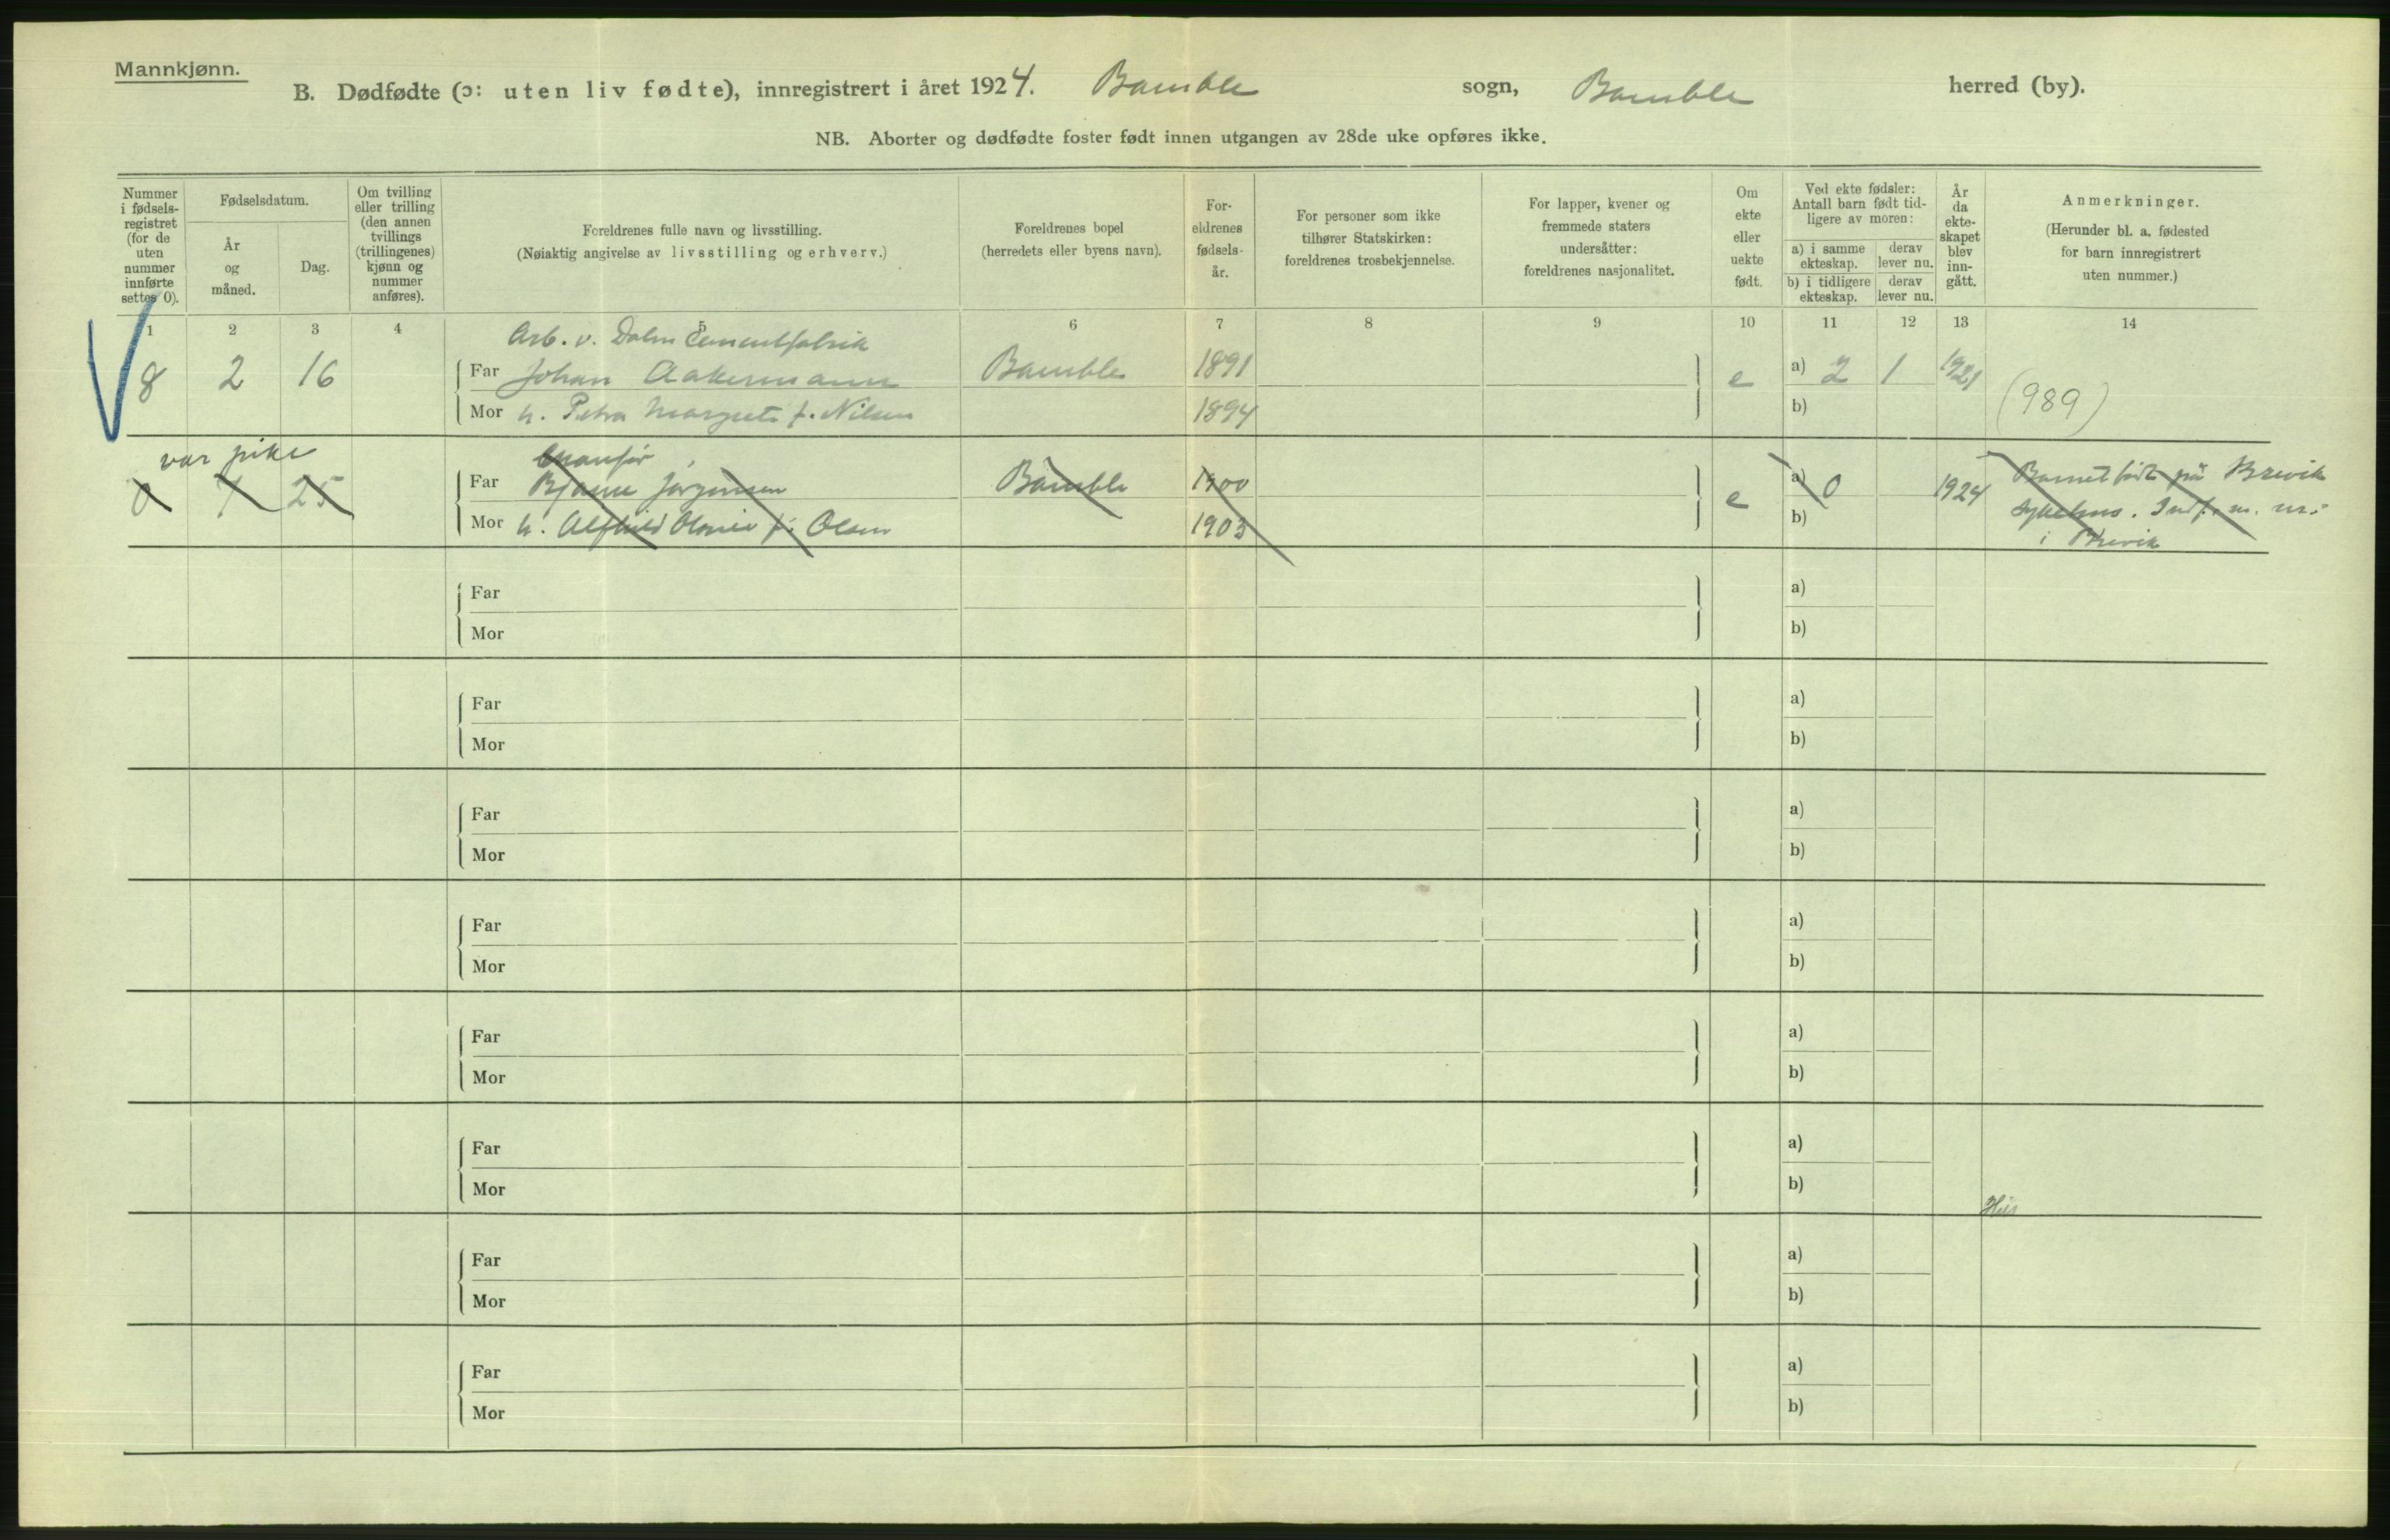 Mannkjønn.
B. Dødfødte (ɔ: uten liv fødte), innregistrert i året 1924. Bamble sogn, Bamble herred (by).
NB. Aborter og dødfødte foster født innen utgangen av 28de uke opføres ikke.
Nummer
i fødsels-
registret
(for de
uten
nummer
innførte
settes 0).
Fødselsdatum.
År
og
måned.
Dag.
Om tvilling
eller trilling
(den annen
tvillings
(trillingenes)
kjønn og
nummer
anføres).
Foreldrenes fulle navn og livsstilling.
(Nøiaktig angivelse av livsstilling og erhverv.)
Foreldrenes bopel
(herredets eller byens navn).
For-
eldrenes
fødsels-
år.
For personer som ikke
tilhører Statskirken:
foreldrenes trosbekjennelse.
For lapper, kvener og
fremmede staters
undersåtter:
foreldrenes nasjonalitet.
Om
ekte
eller
uekte
født.
Ved ekte fødsler:
Antall barn født tid-
ligere av moren:
a) i samme
ekteskap.
derav
lever nu.
b) i tidligere
ekteskap.
derav
lever nu.
År
da
ekte-
skapet
blev
inn-
gått.
Anmerkninger.
(Herunder bl. a. fødested
for barn innregistrert
uten nummer.)
1 2 3 4 5 6 7 8 9 10 11 12 13 14
Arb. v. Dalen Cementfabrik
8 2 16 Far Johan Aakermann Bamble 1891 e a) 2 1 1921 (989)
Mor h. Petra Margrete f. Nilsen 1894 b)
var pike
0 7 25 Far Bjarne Jørgensen Bamble 1900 e a) 0 1924 Barnet født på Brevik
Mor h. f. Olsen 1903 b) sykehus.
i Brevik
Far a)
Mor b)
Far a)
Mor b)
Far a)
Mor b)
Far a)
Mor b)
Far a)
Mor b)
Far a)
Mor b)
Far a)
Mor b)
Far a)
Mor b)